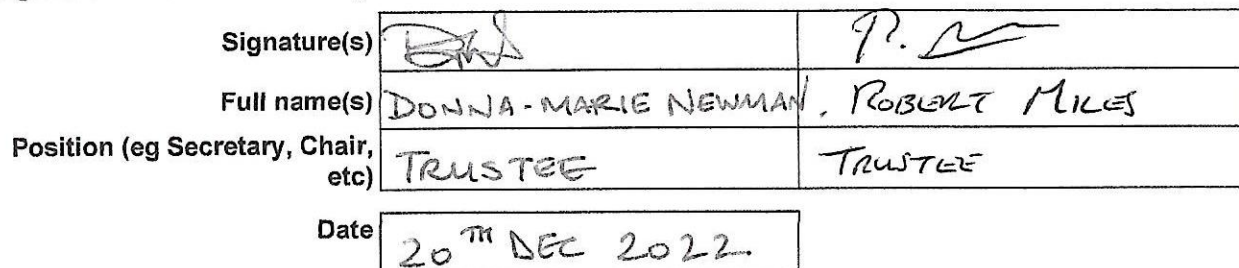 Signature(s)
Full name(s) DONNA-MARIE NEWMAN. ROBERT MILES
Position (eg Secretary, Chair, etc) TRUSTEE TRUSTEE
Date 20TH DEC 2022.